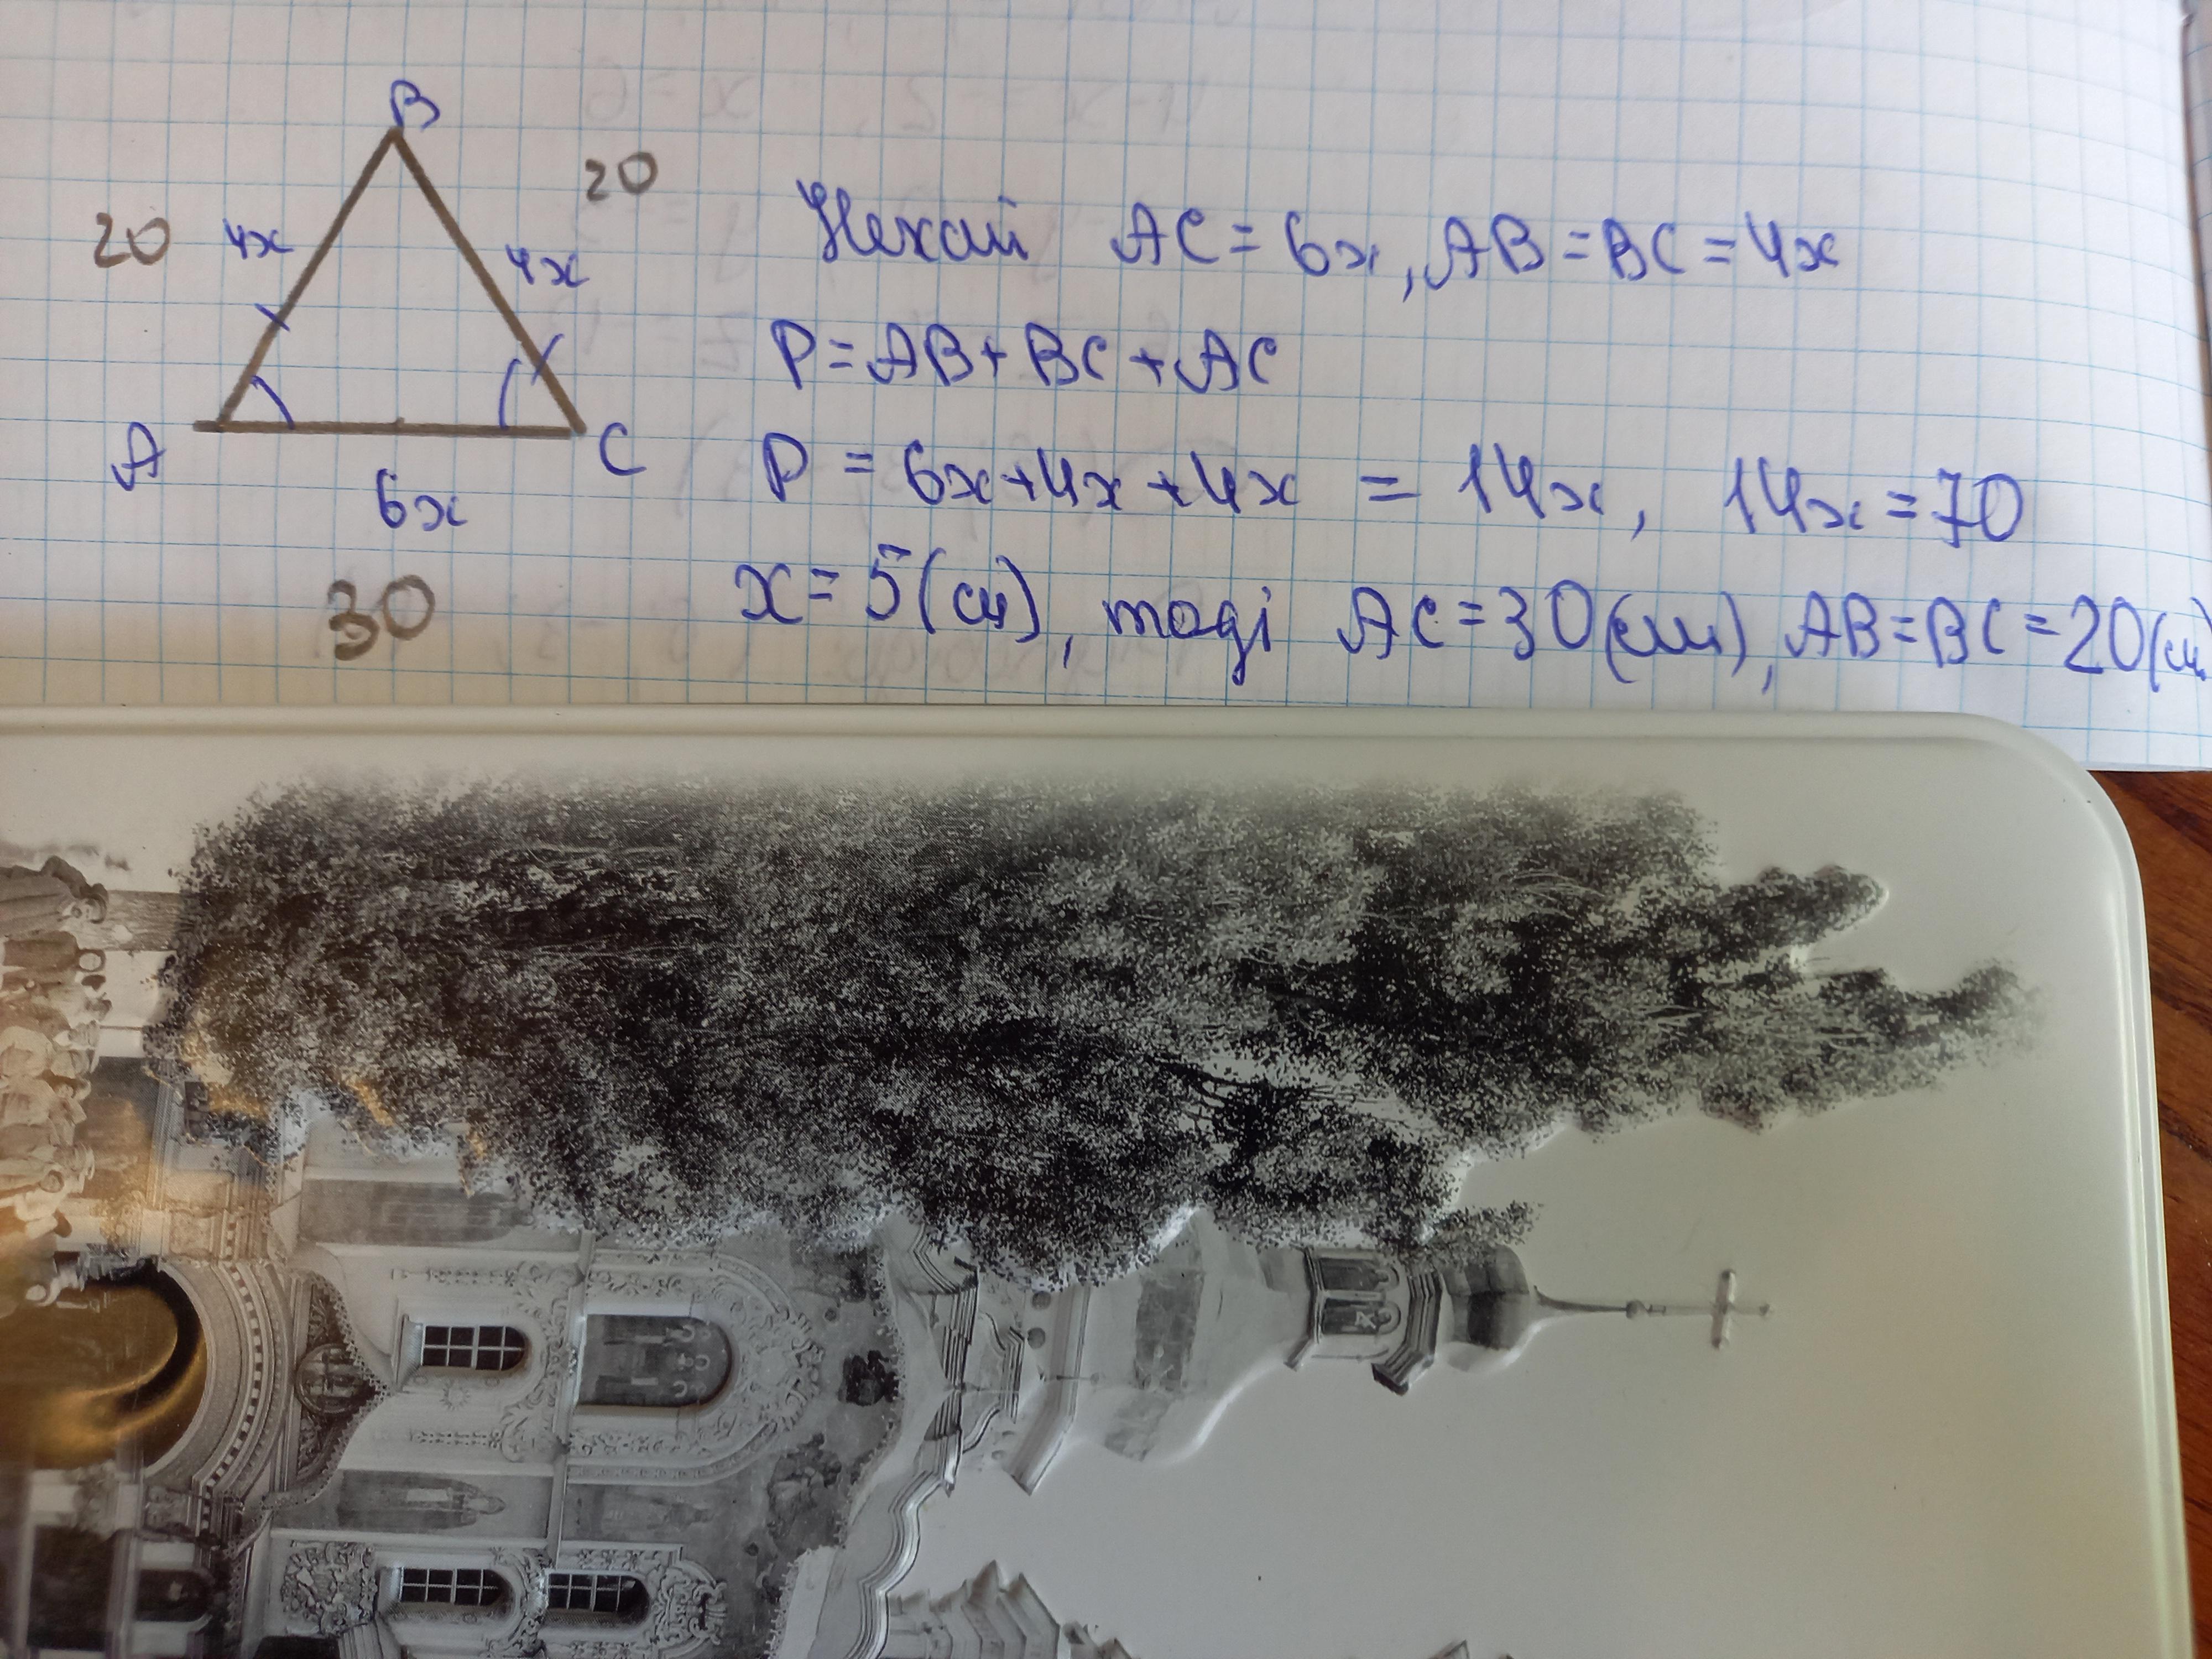 B
20
20
4x
4x
A
C
6x
30
Нехай AC = 6x, AB = BC = 4x
P = AB + BC + AC
P = 6x + 4x + 4x = 14x, 14x = 70
x = 5 (см), тоді AC = 30 (см), AB = BC = 20 (см